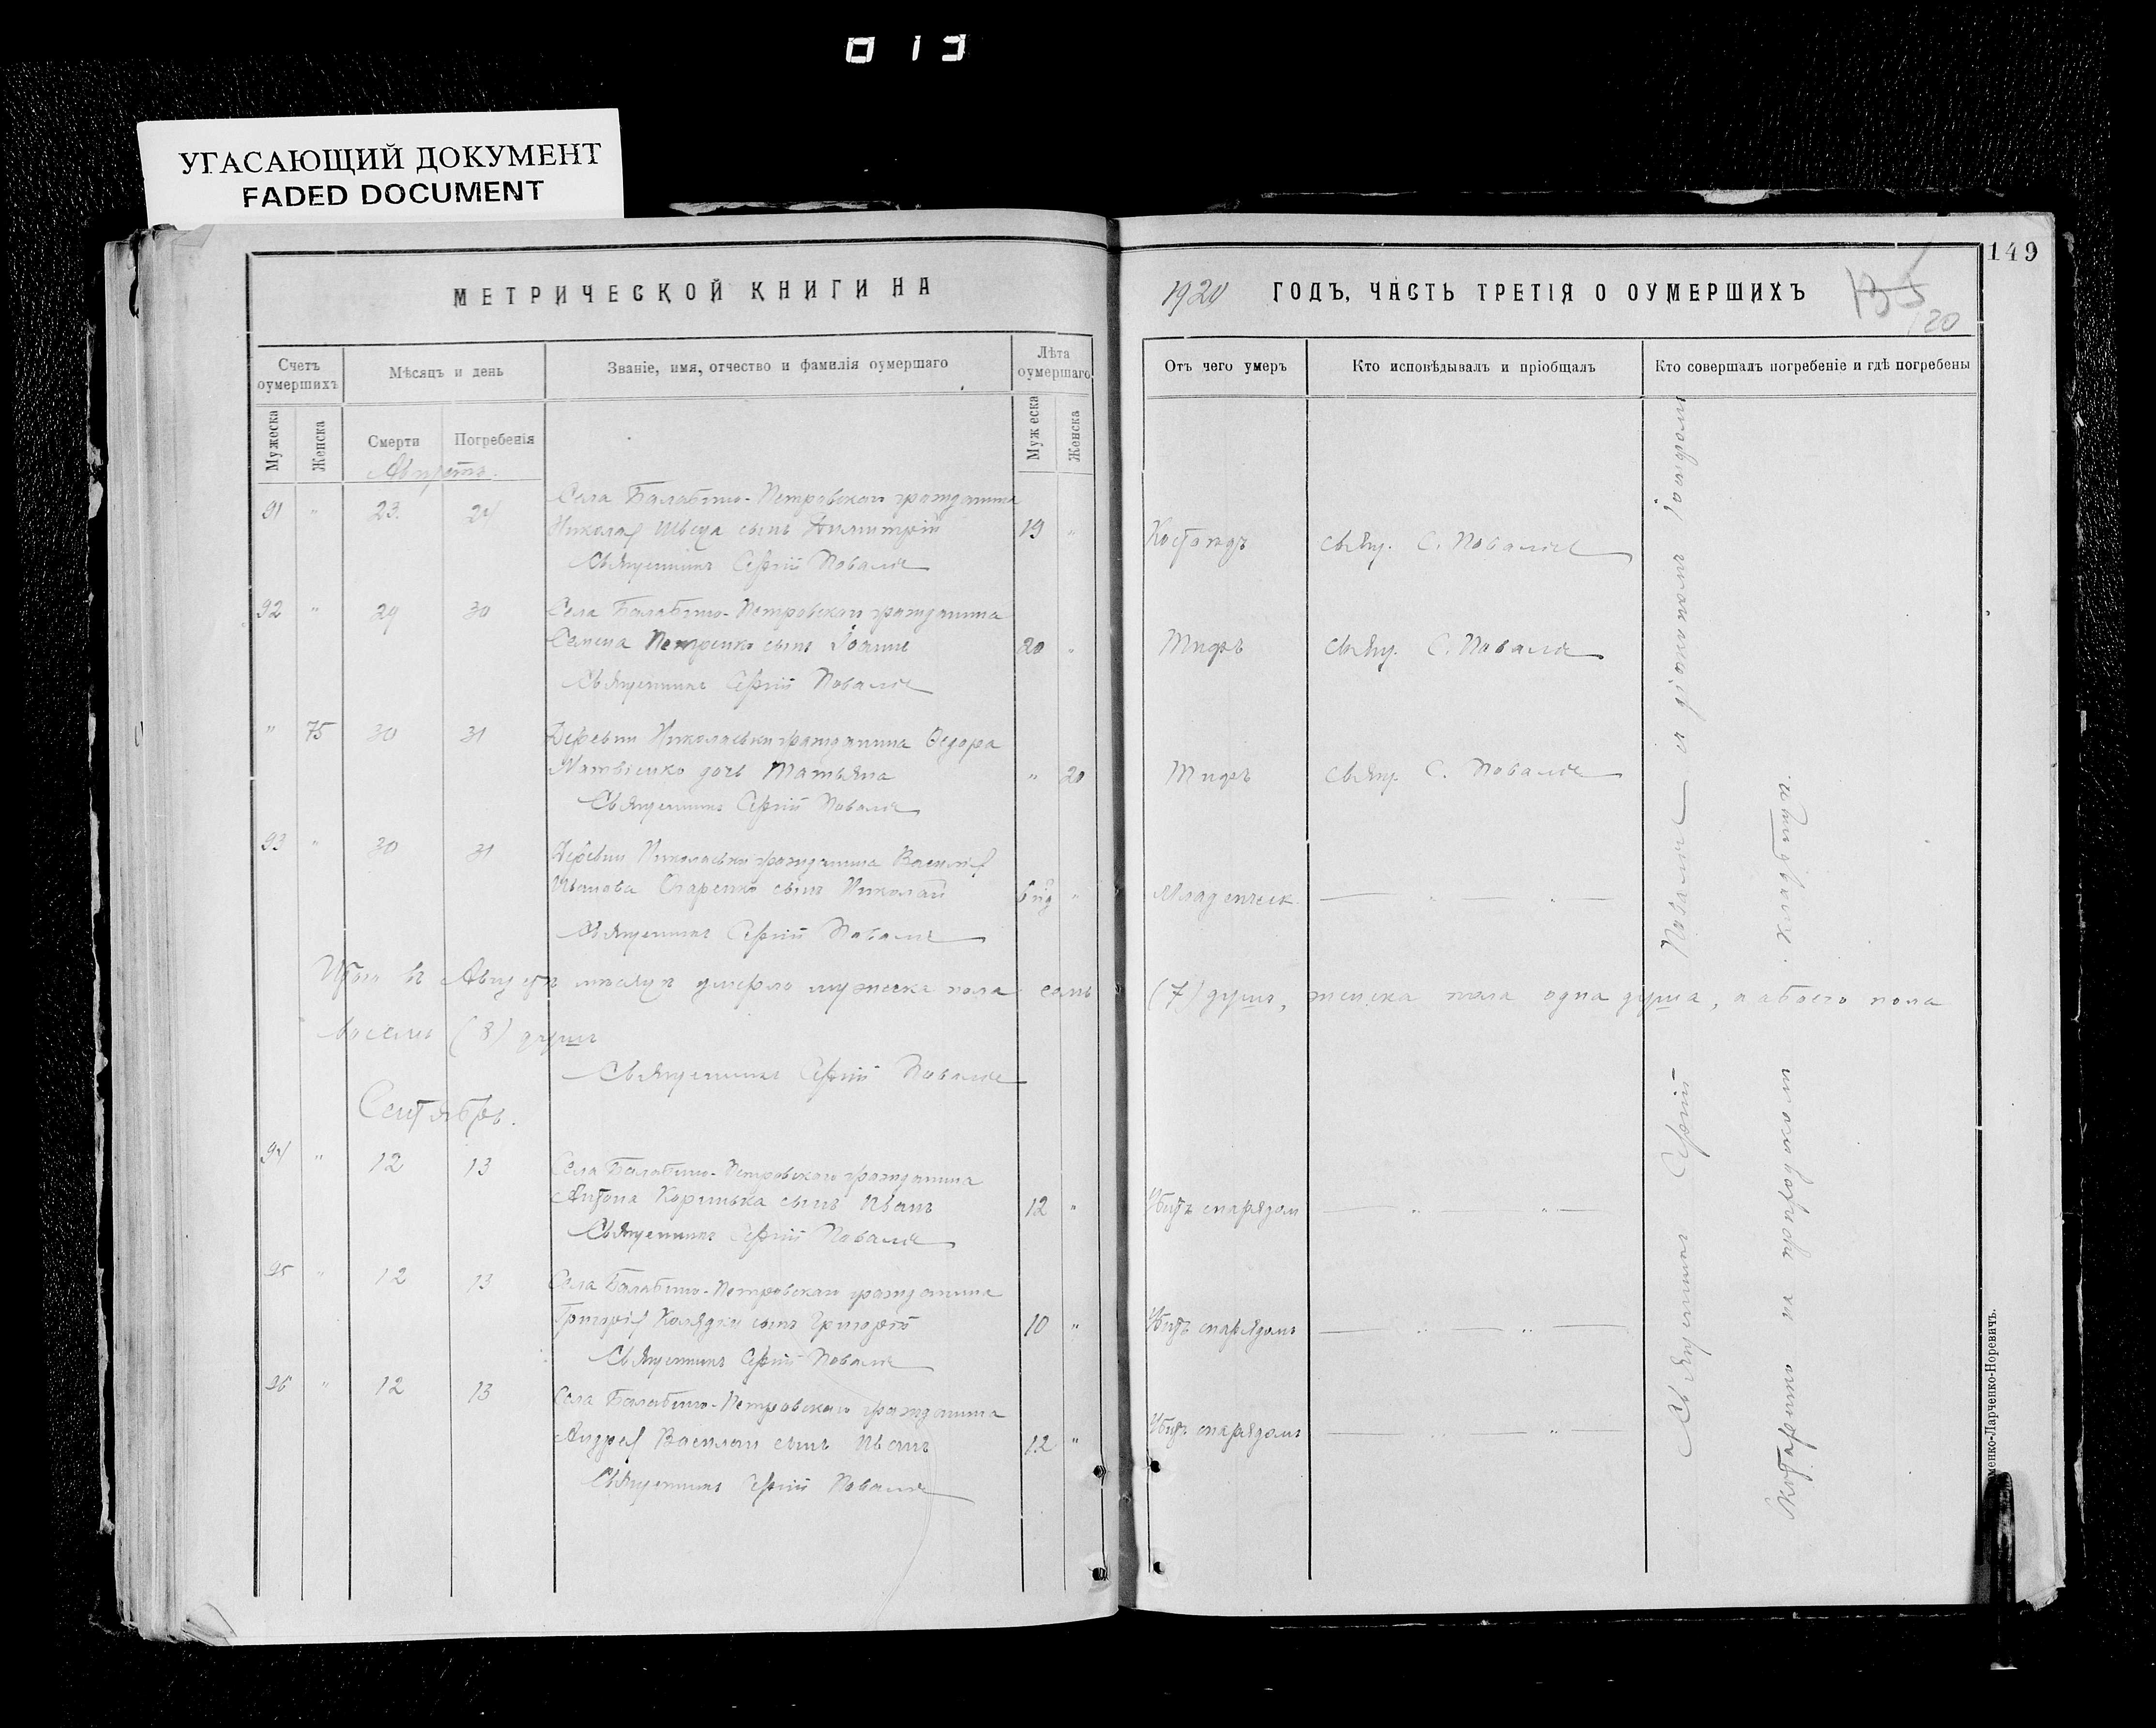 013
УГАСАЮЩИЙ ДОКУМЕНТ
FADED DOCUMENT
МЕТРИЧЕСКОЙ КНИГИ НА
Счетъ оумершихъ
Мѣсяцъ и день
Званіе, имя, отчество и фамилія оумершаго
Лѣта оумершаго
Мужеска
Женска
Смерти
Погребенія
Мужеска
Женска
Августъ.
91 " 23. 24 Села Балабино-Петровскаго гражданина
Николая Швеца сынъ Димитрій 19 "
Священникъ Сергій Поваля
92 " 29 30 Села Балабино-Петровскаго гражданина
Семена Петренко сынъ Іоаннъ 20 "
Священникъ Сергій Поваля
" 75 30 31 Деревни Николаевки гражданина Ѳедора
Матвіенко дочь Татьяна " 20
Священникъ Сергій Поваля
93 " 30 31 Деревни Николаевки гражданина Василія
Иванова сынъ Николай "
Священникъ Сергій Поваля
Итого въ Августѣ мѣсяцѣ умерло мужеска пола семь
восемь (8) душъ
Священникъ Сергій Поваля
Сентябрь.
94 " 12 13 Села Балабино-Петровскаго гражданина
Антона сынъ Иванъ 12 "
Священникъ Сергій Поваля
95 " 12 13 Села Балабино-Петровскаго гражданина
Григорія Колядки сынъ Григорій 10 "
Священникъ Сергій Поваля
96 " 12 13 Села Балабино-Петровскаго гражданина
Андрея сынъ Иванъ 12 "
Священникъ Сергій Поваля
149
1920 ГОДЪ, ЧАСТЬ ТРЕТІЯ О ОУМЕРШИХЪ
135
120
Отъ чего умеръ
Кто исповѣдывалъ и пріобщалъ
Кто совершалъ погребеніе и гдѣ погребены
свящ. С. Поваля
Тифъ свящ. С. Поваля
Тифъ свящ. С. Поваля
Младенческ.
(7) душъ, женска пола одна душа, а обоего пола
Убитъ снарядом
Убитъ снарядомъ
Убитъ снарядомъ
Священникъ Сергій Поваля с діакономъ
на приходскомъ кладбищѣ.
менко-Ларченко-Норевичъ.